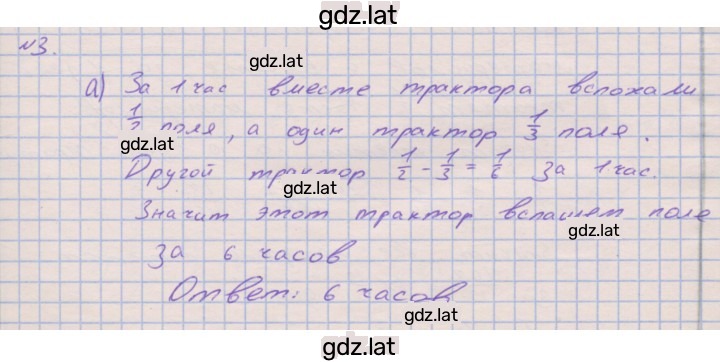 gdz.lat
№3.
gdz.lat
а) За 1 час вместе трактора вспахали
1/2 поля, а один трактор 1/3 поля.
gdz.lat
Другой трактор 1/2 - 1/3 = 1/6 за 1 час.
gdz.lat
Значит этот трактор вспашет поле
gdz.lat
за 6 часов
Ответ: 6 часов
gdz.lat
gdz.lat